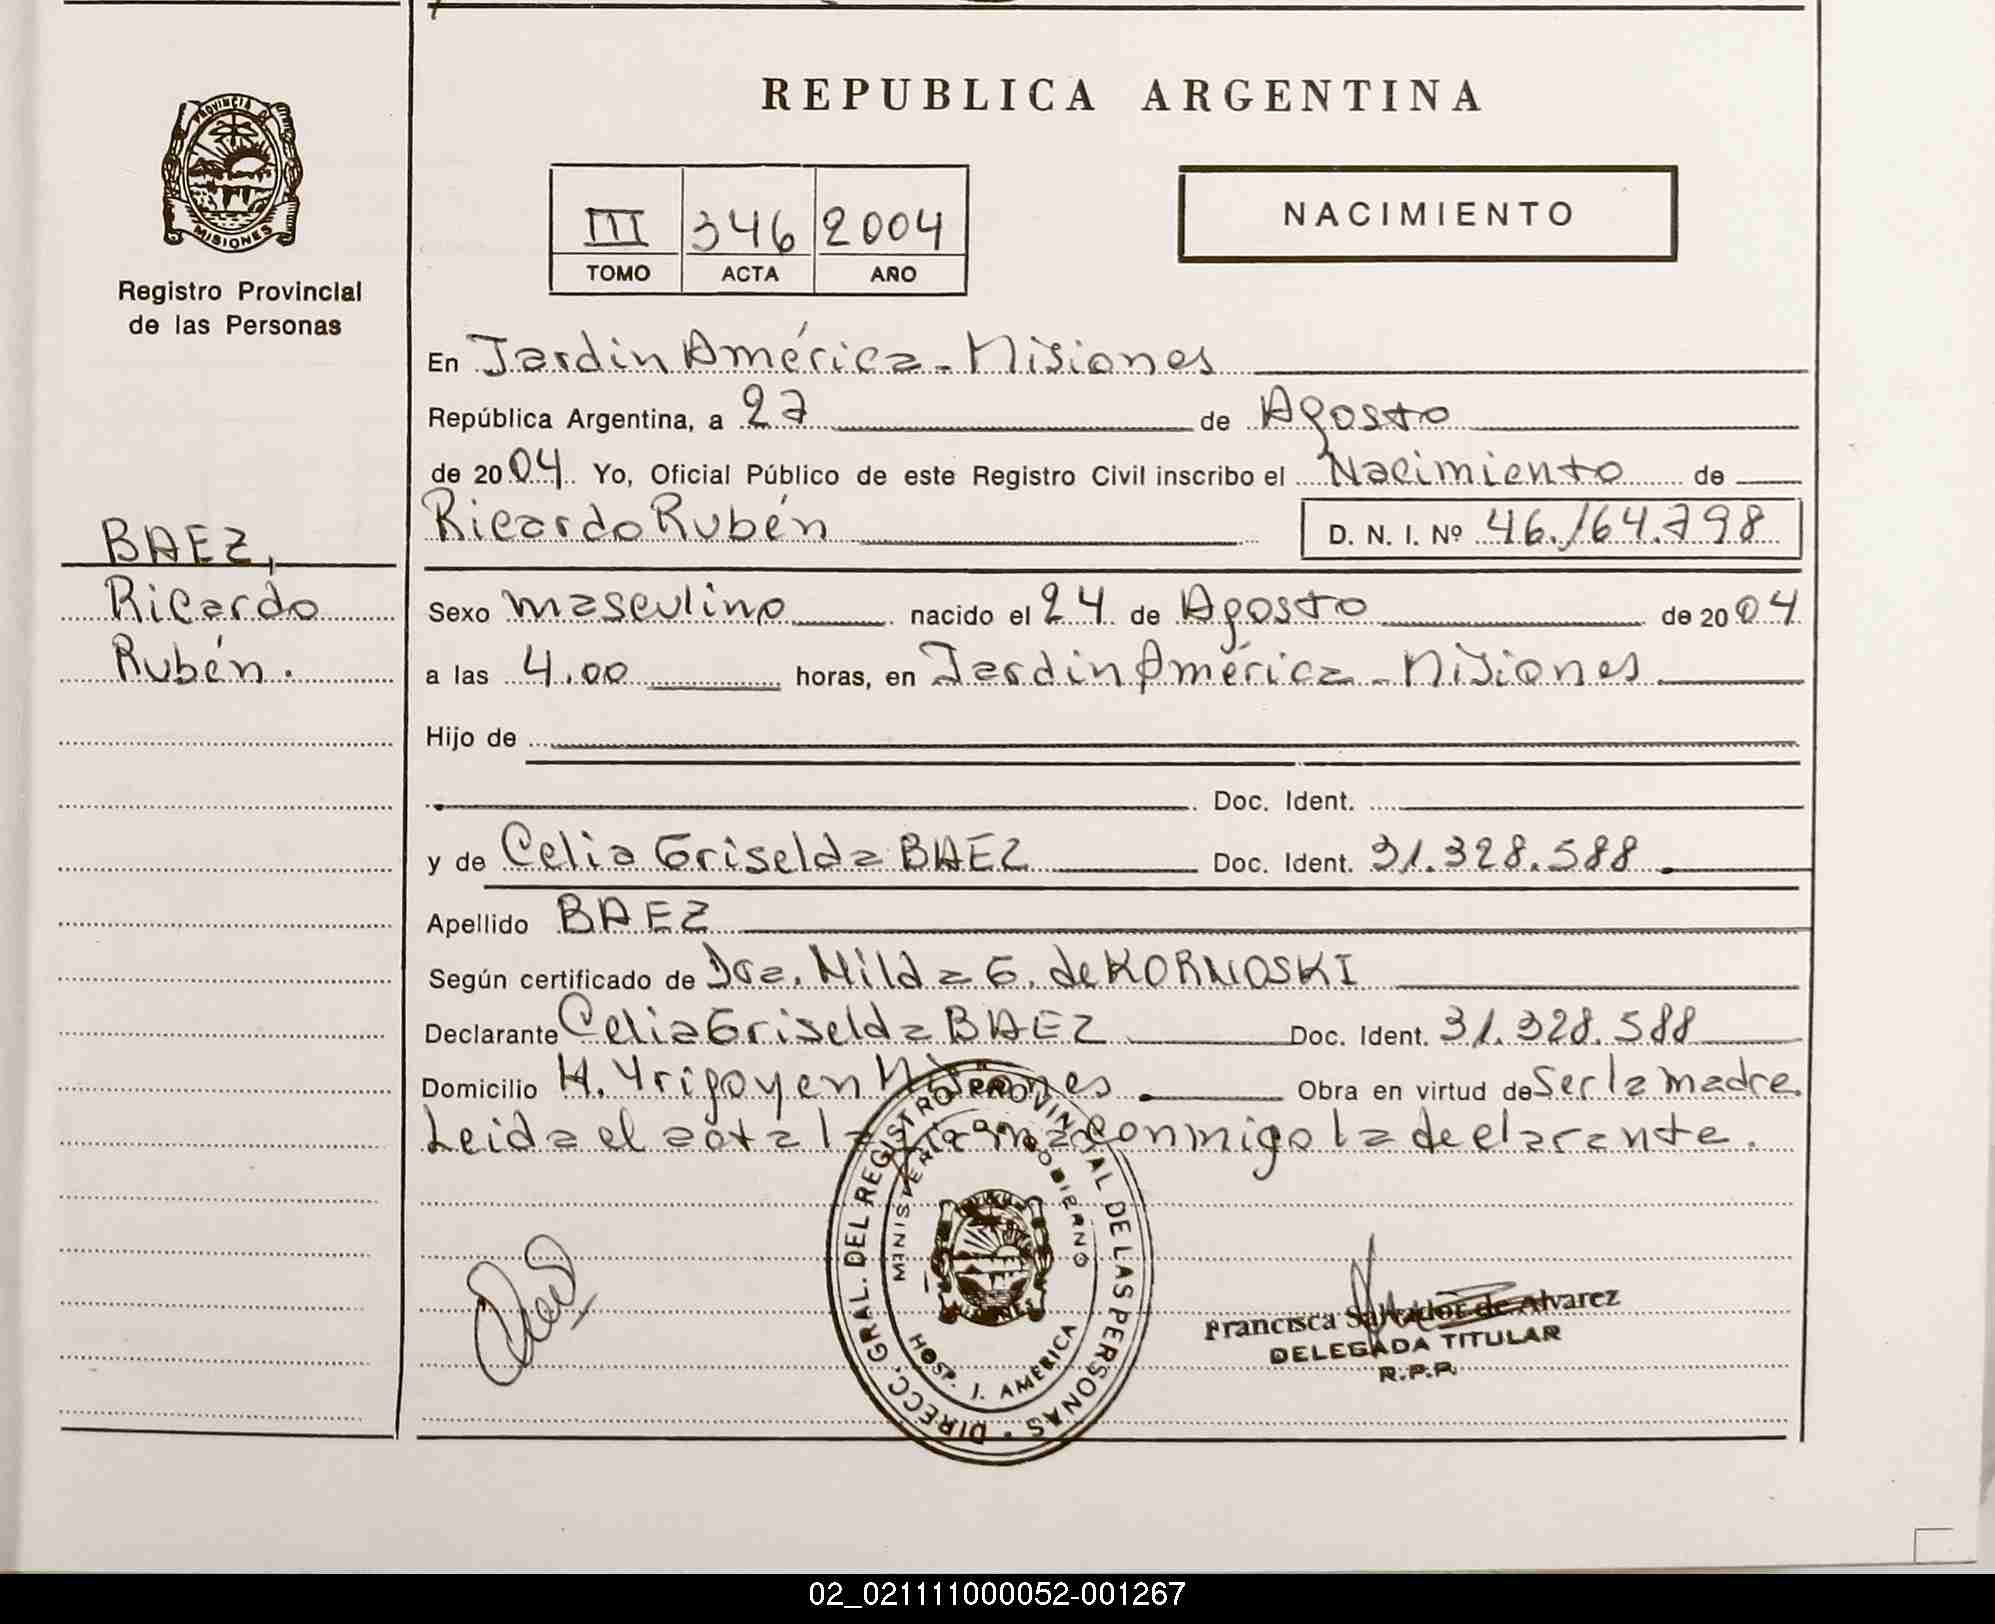 REPUBLICA ARGENTINA
PROVINCIA DE
MISIONES
Registro Provincial
de las Personas
III 346 2004
TOMO ACTA AÑO
NACIMIENTO
En Jardin América - Misiones
República Argentina, a 27 de Agosto
de 2004 Yo, Oficial Público de este Registro Civil inscribo el Nacimiento de
Ricardo Rubén D. N. I. Nº 46.164.798
BAEZ,
Ricardo
Rubén.
Sexo masculino nacido el 24 de Agosto de 2004
a las 4.00 horas, en Jardin América - Misiones
Hijo de
Doc. Ident.
y de Celia Griselda BAEZ Doc. Ident. 31.328.588
Apellido BAEZ
Según certificado de Dra. Hilda G. de KORNOSKI
Declarante Celia Griselda BAEZ Doc. Ident. 31.328.588
Domicilio H. Yrigoyen Misiones Obra en virtud de Ser la madre.
Leida el acta la firma conmigo la declarante.
DIRECC. GRAL. DEL REGISTRO PROVINCIAL DE LAS PERSONAS
MINISTERIO DE GOBIERNO
HOSP. J. AMERICA
Francisca Salvador de Alvarez
DELEGADA TITULAR
R.P.P.
02_021111000052-001267